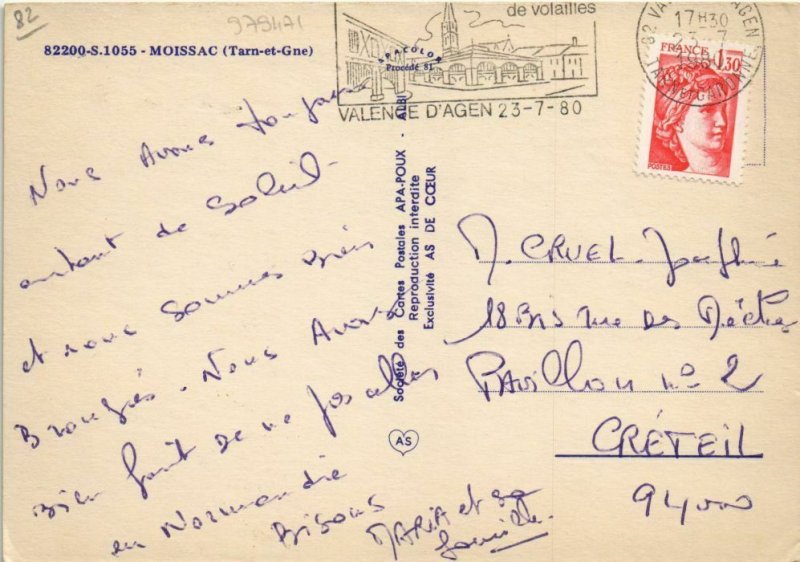 82
979471
82200-S.1055 - MOISSAC (Tarn-et-Gne)
de volailles
VALENCE D'AGEN 23-7-80
17H30
23-7
1980
82 VALENCE D'AGEN
TARN ET GARONNE
FRANCE
1,30
POSTES
APACOLOR
Procédé 81
Société des Cartes Postales APA-POUX - ALBI
Reproduction interdite
Exclusivité AS DE CŒUR
AS
Nous Avons toujours
autant de Soleil
et nous Sommes Bien
Bronzés. Nous Avons
Bien fait de ne pas aller
en Normandie
Bisous
MARIA et sa
famille
M. CRUEL Joséphine
18 Bis rue des Mèches
Pavillon n° 2
CRÉTEIL
94000